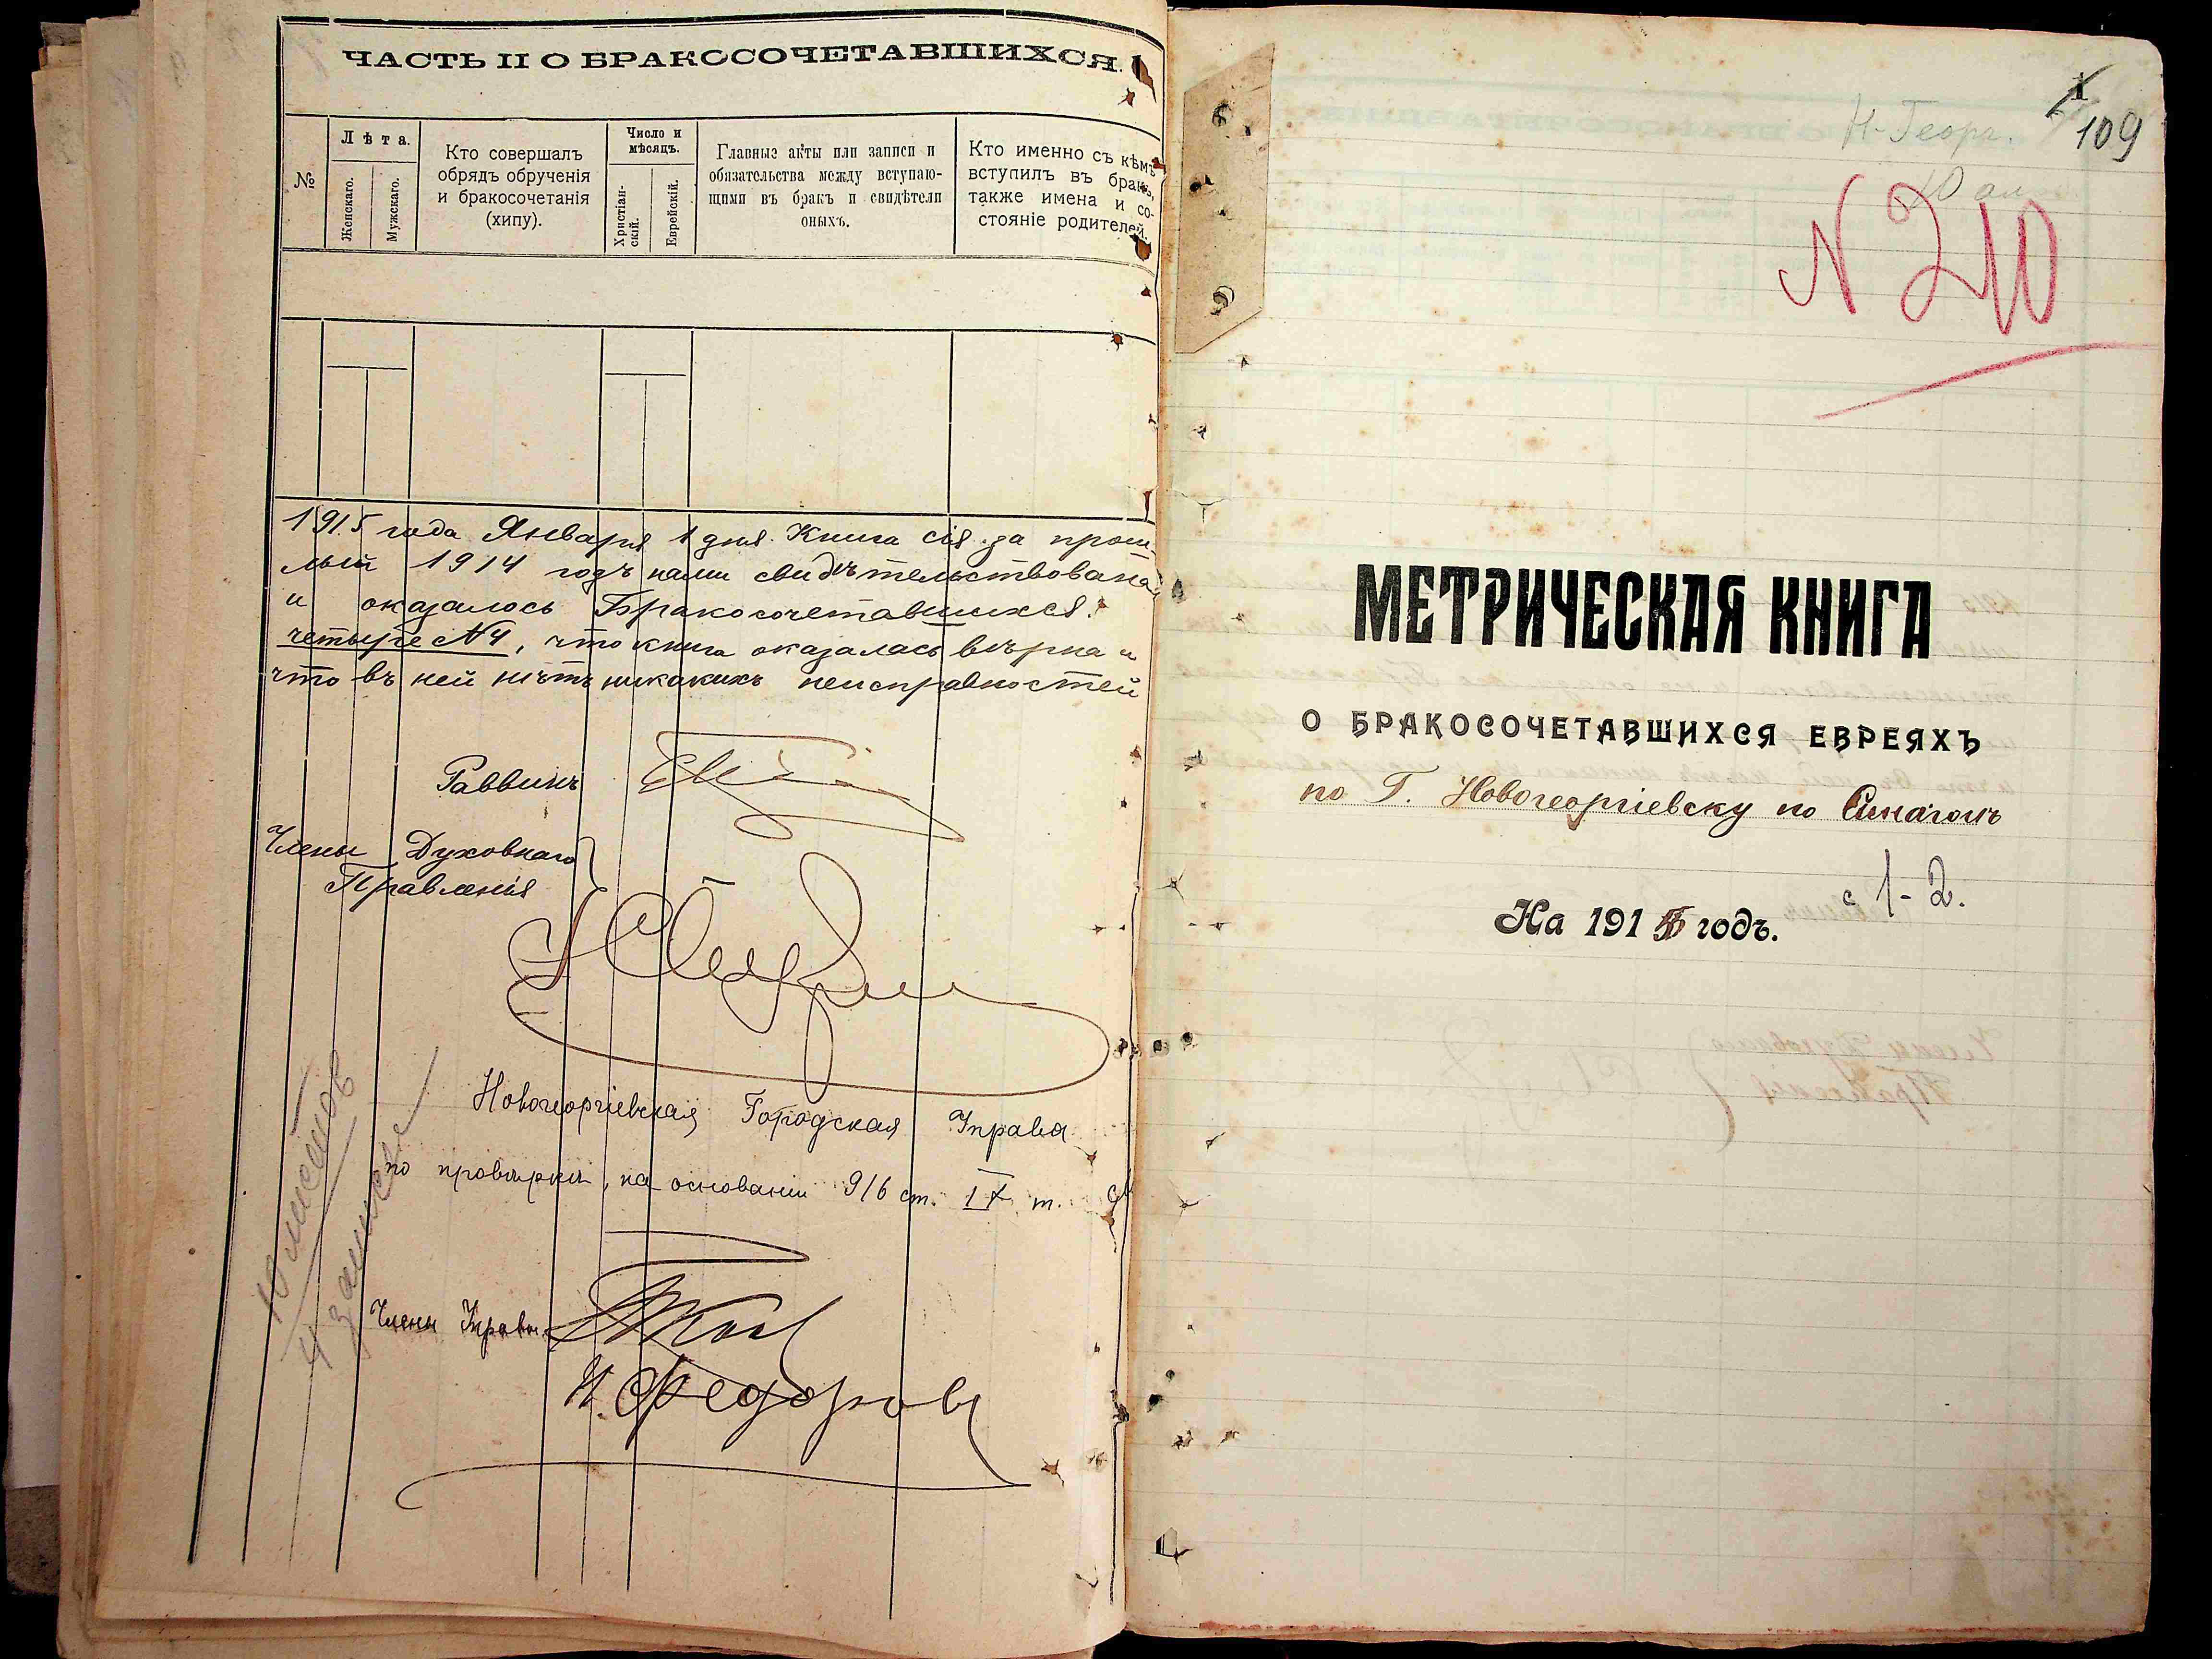 ЧАСТЬ II О БРАКОСОЧЕТАВШИХСЯ.
№
Лѣта.
Женскаго.
Мужскаго.
Кто совершалъ
обрядъ обрученія
и бракосочетанія
(хипу).
Число и
мѣсяцъ.
Христіан-
скій.
Еврейскій.
Главные акты или записи и
обязательства между вступаю-
щими въ бракъ и свидѣтели
оныхъ.
Кто именно съ кѣмъ
вступилъ въ бракъ,
также имена и со-
стояніе родителей.
1915 года Января 1 дня. Книга сія за прош-
лый 1914 годъ нами свидѣтельствована
и оказалось Бракосочетавшихся:
четыре №4, что книга оказалась вѣрна и
что въ ней нѣтъ никакихъ неисправностей
Раввинъ
Члены Духовнаго
Правленія
Новогеоргіевская Городская Управа
по провѣркѣ, на основаніи 916 ст. IX т.
Члены Управы
И. Федоров
10 листов
4 записи
1
109
Н-Георг.
10
N 210
МЕТРИЧЕСКАЯ КНИГА
О БРАКОСОЧЕТАВШИХСЯ ЕВРЕЯХЪ
по Г. Новогеоргіевску по Синагогѣ
с 1-2.
На 1915 годъ.